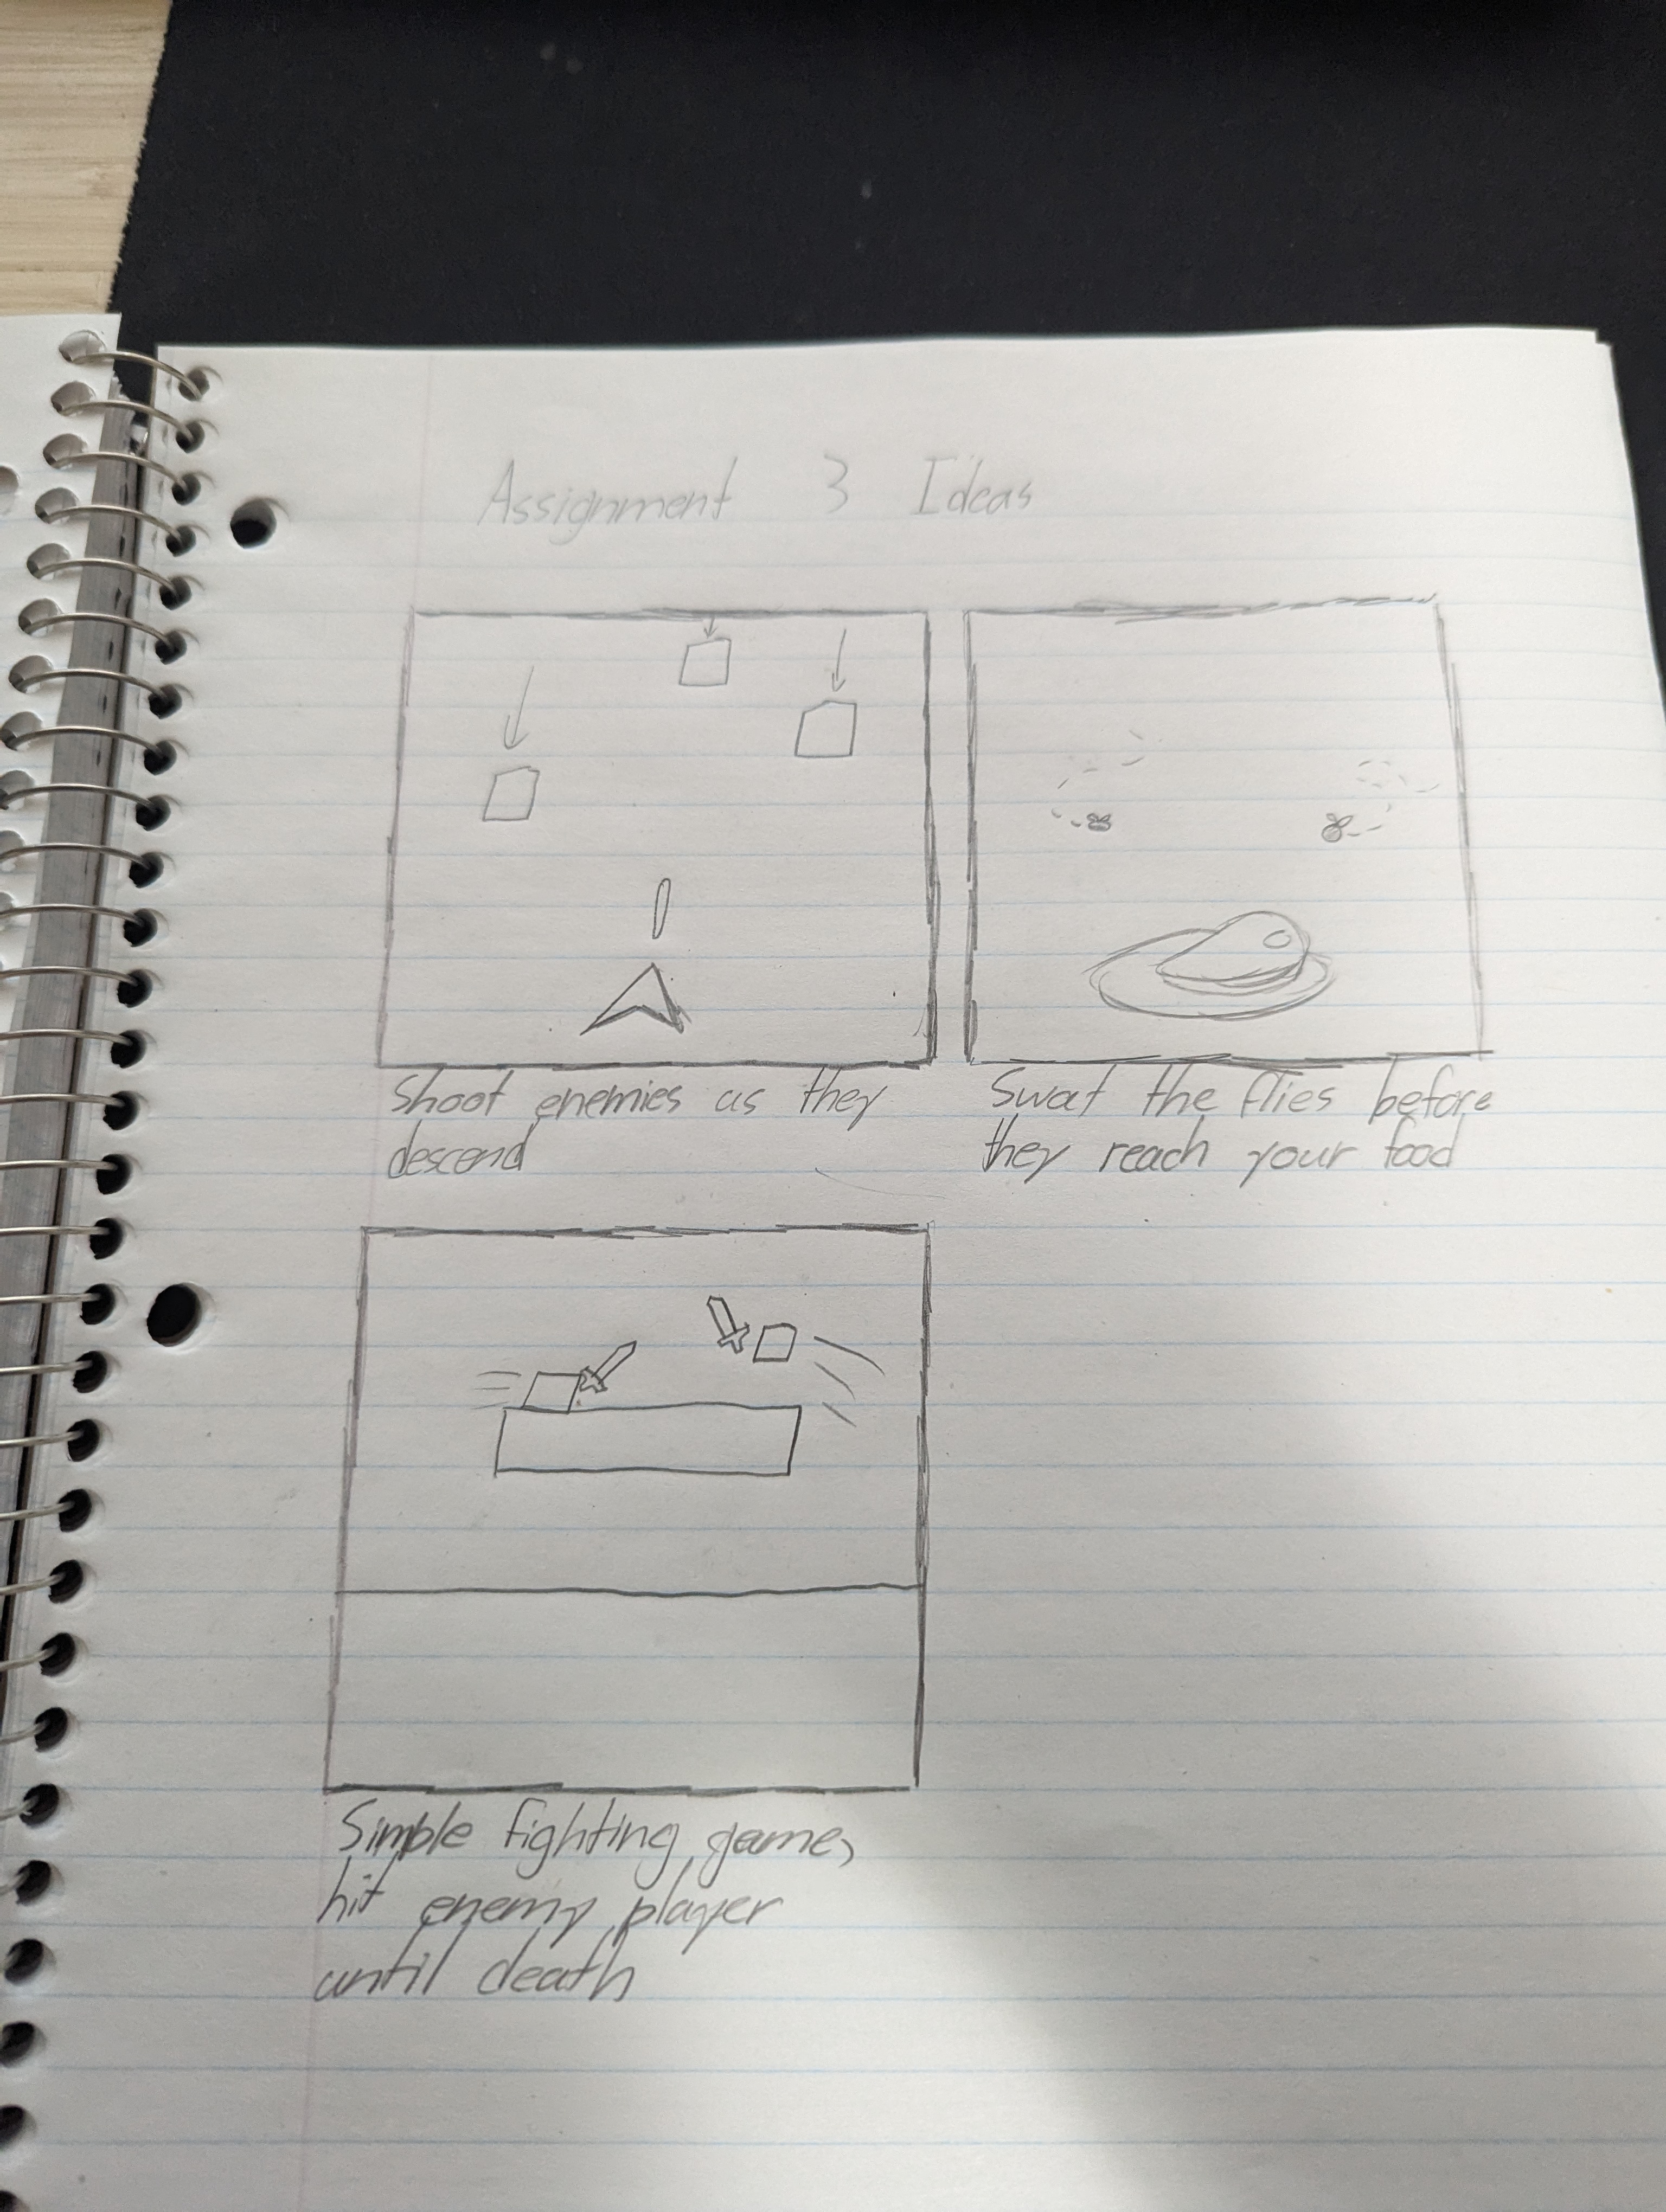 Assignment 3 Ideas
Shoot enemies as they
descend
Swat the flies before
they reach your food
Simple fighting game,
hit enemy player
until death